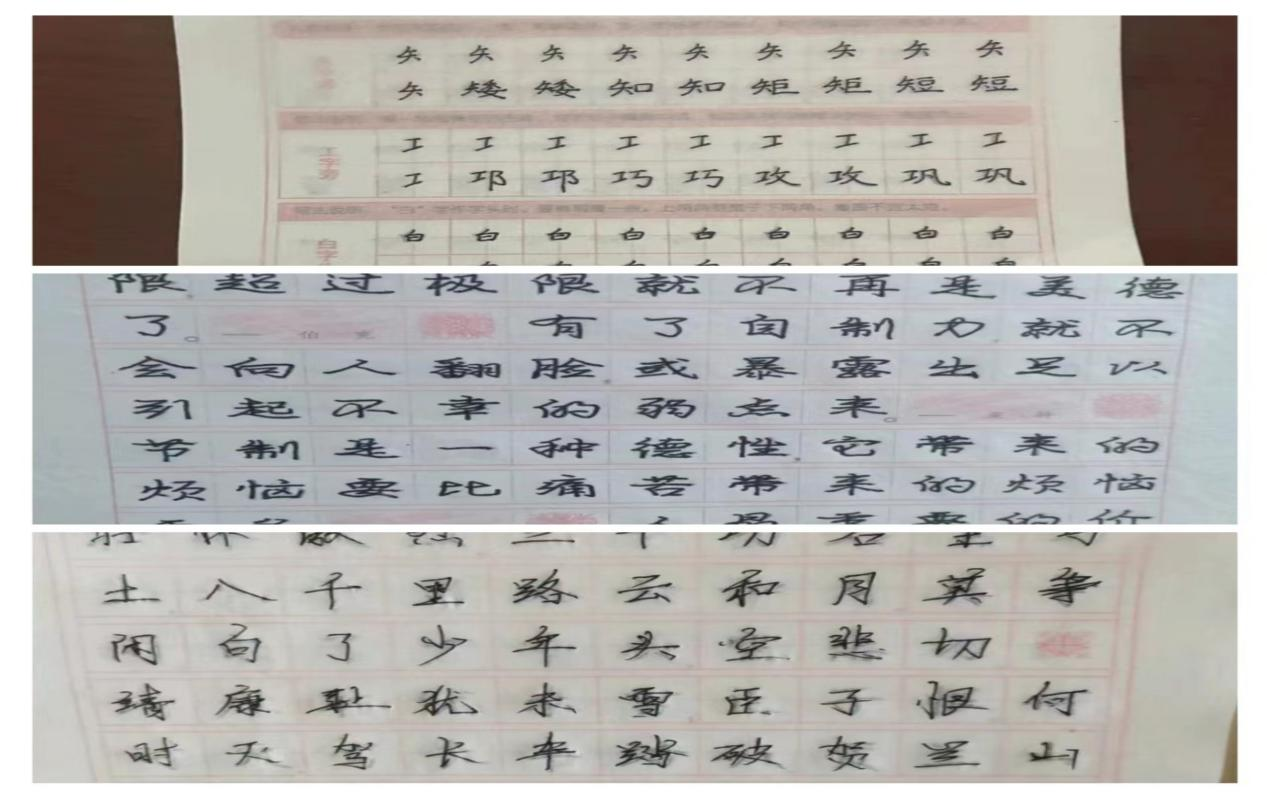 矢 矢 矢 矢 矢 矢 矢 矢 矢
矢 矮 矮 知 知 矩 矩 短 短
工字旁
工 工 工 工 工 工 工 工 工
工 邛 邛 巧 巧 攻 攻 巩 巩
白字
白 白 白 白 白 白 白 白 白
限超过极限就不再是美德
了。——伯克 有了自制力就不
会向人翻脸或暴露出足以
引起不幸的弱点来。
节制是一种德性,它带来的
烦恼要比痛苦带来的烦恼
土八千里路云和月莫等
闲白了少年头空悲切
靖康耻犹未雪臣子恨何
时灭驾长车踏破贺兰山